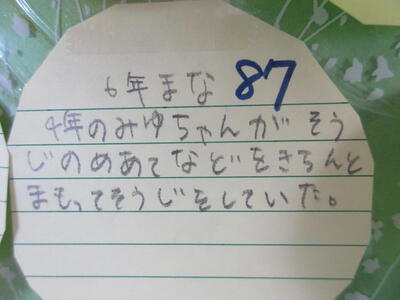 6年まな 87
4年のみゆちゃんがそう
じのめあてなどをきちんと
まもってそうじをしていた。